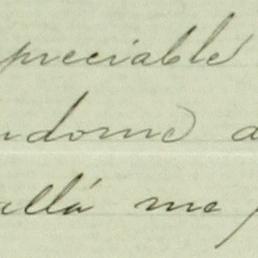 preciable
ndome a
allá me